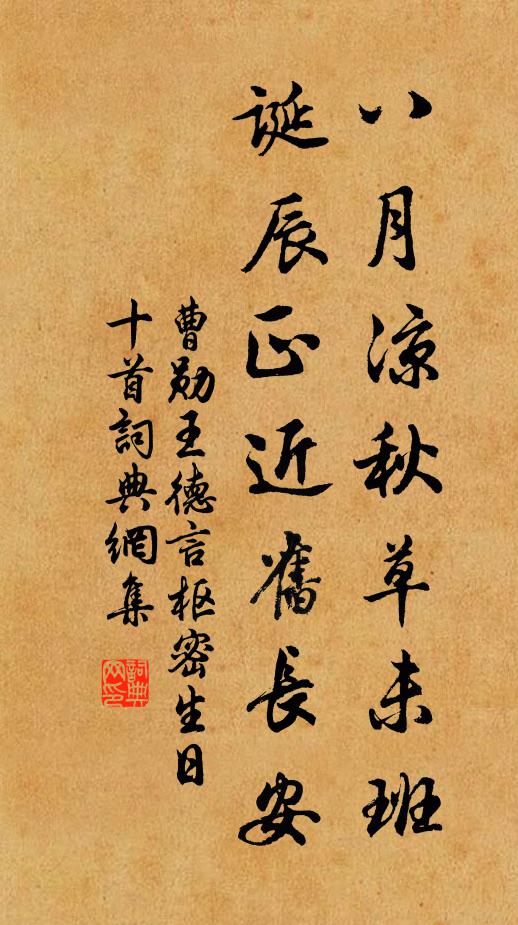 八月凉秋草未班
诞辰正近舊长安
曹勋王德言枢密生日
十首詞典網集
詞典
网印